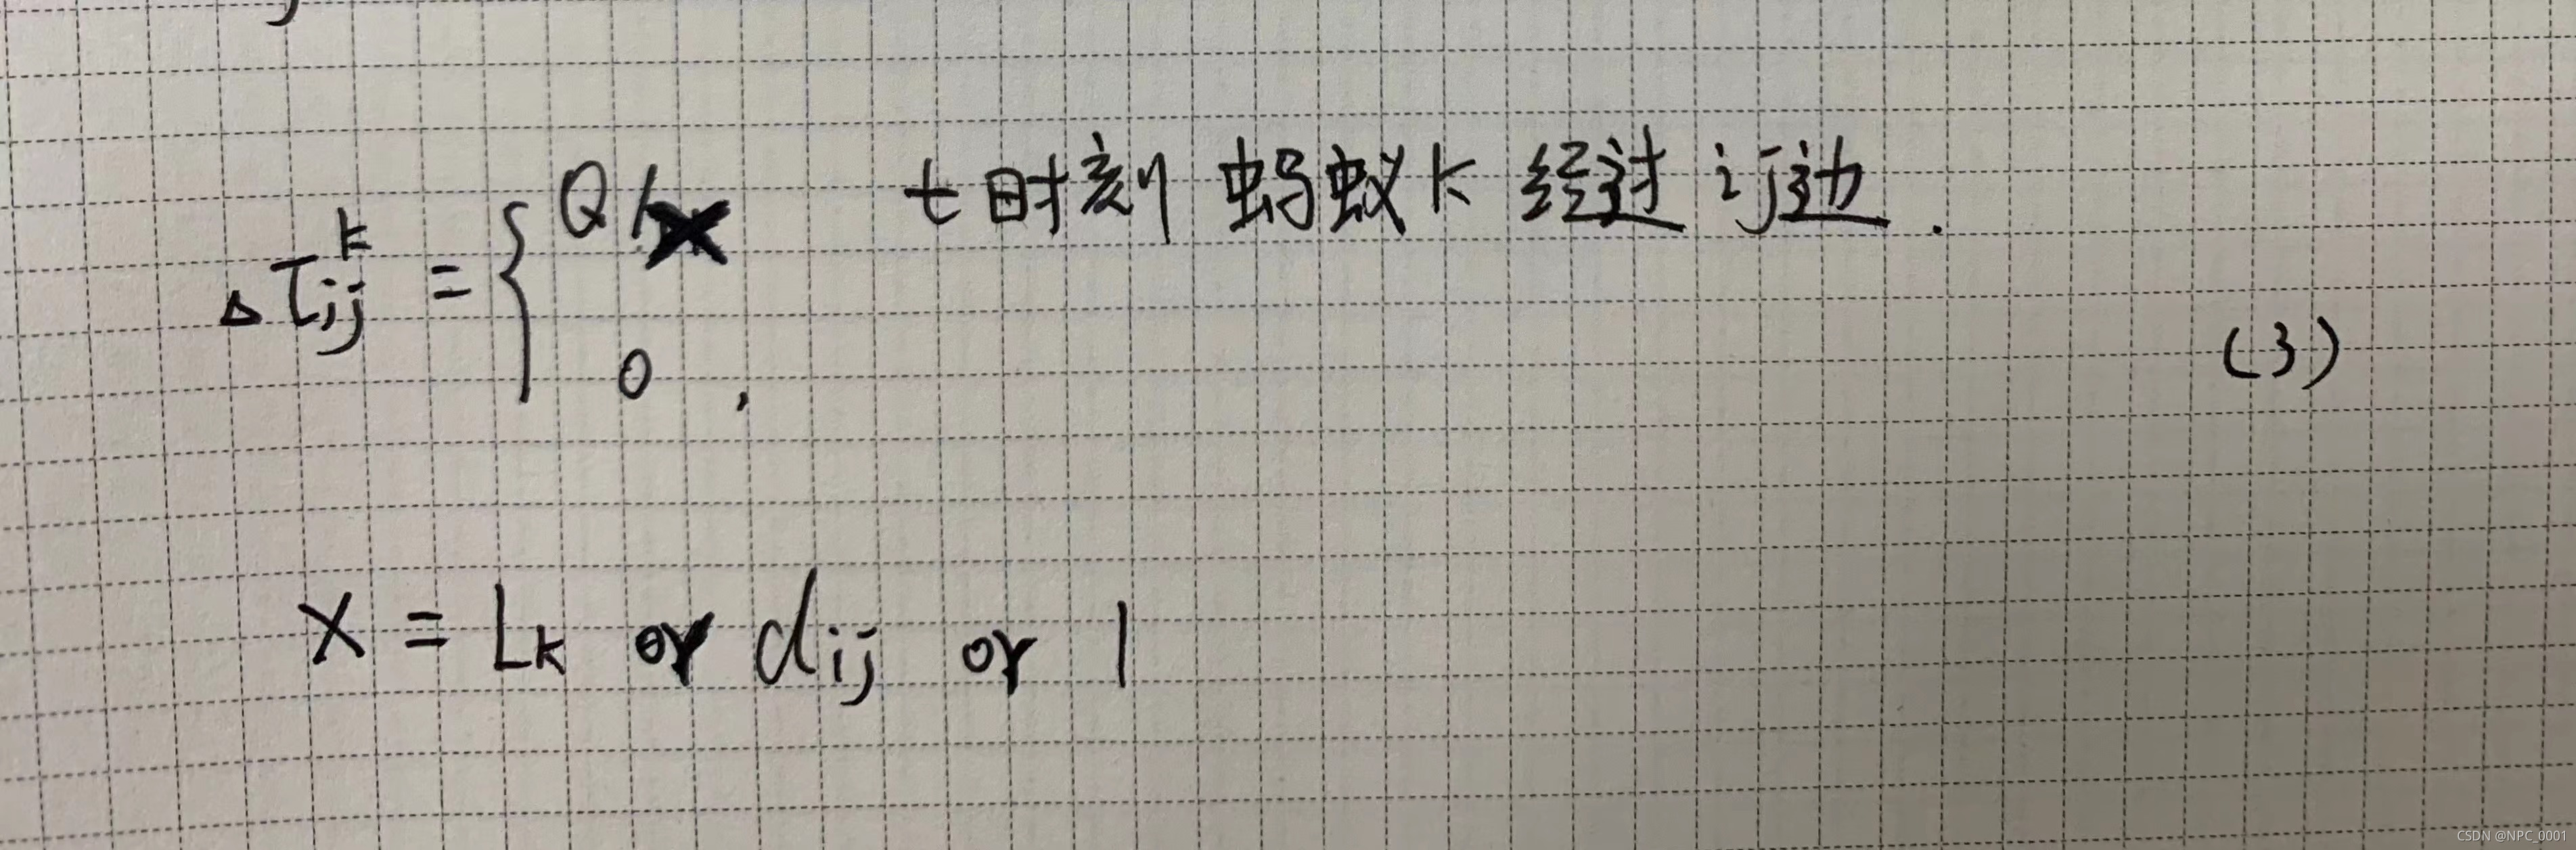 Δτ_{ij}^{k} = { Q/X t时刻 蚂蚁k 经过 ij边.
0,
(3)
X = L_k or d_{ij} or 1
CSDN @NPC_0001